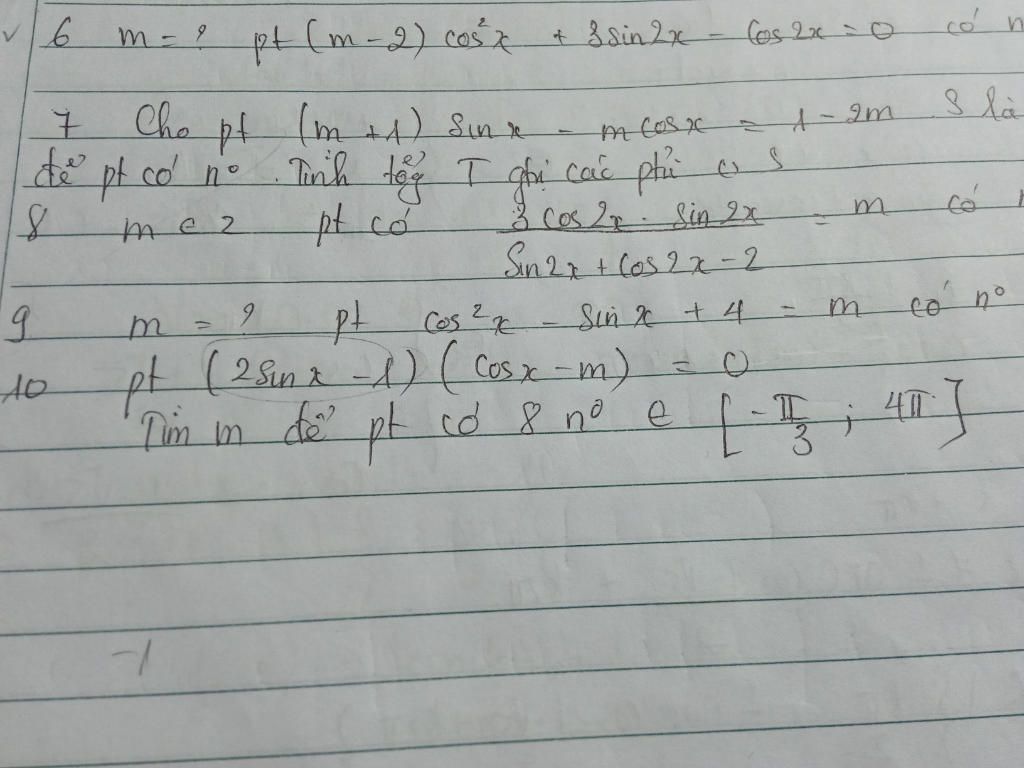 6 m = ? pt (m - 2) cos²x + 3sin2x - cos2x = 0 có n
7 Cho pt (m + 1) sinx - mcosx = 1 - 2m S là
để pt có nº. Tính tổg T ghị các phtử ∈ S
8 m ∈ Z pt có 3 cos2x . sin2x = m có
Sin2x + cos2x - 2
9 m = ? pt cos²x - sinx + 4 = m có nº
10 pt (2sinx - 1) (cosx - m) = 0
Tìm m để pt có 8 nº ∈ [-π/3 ; 4π]
-1